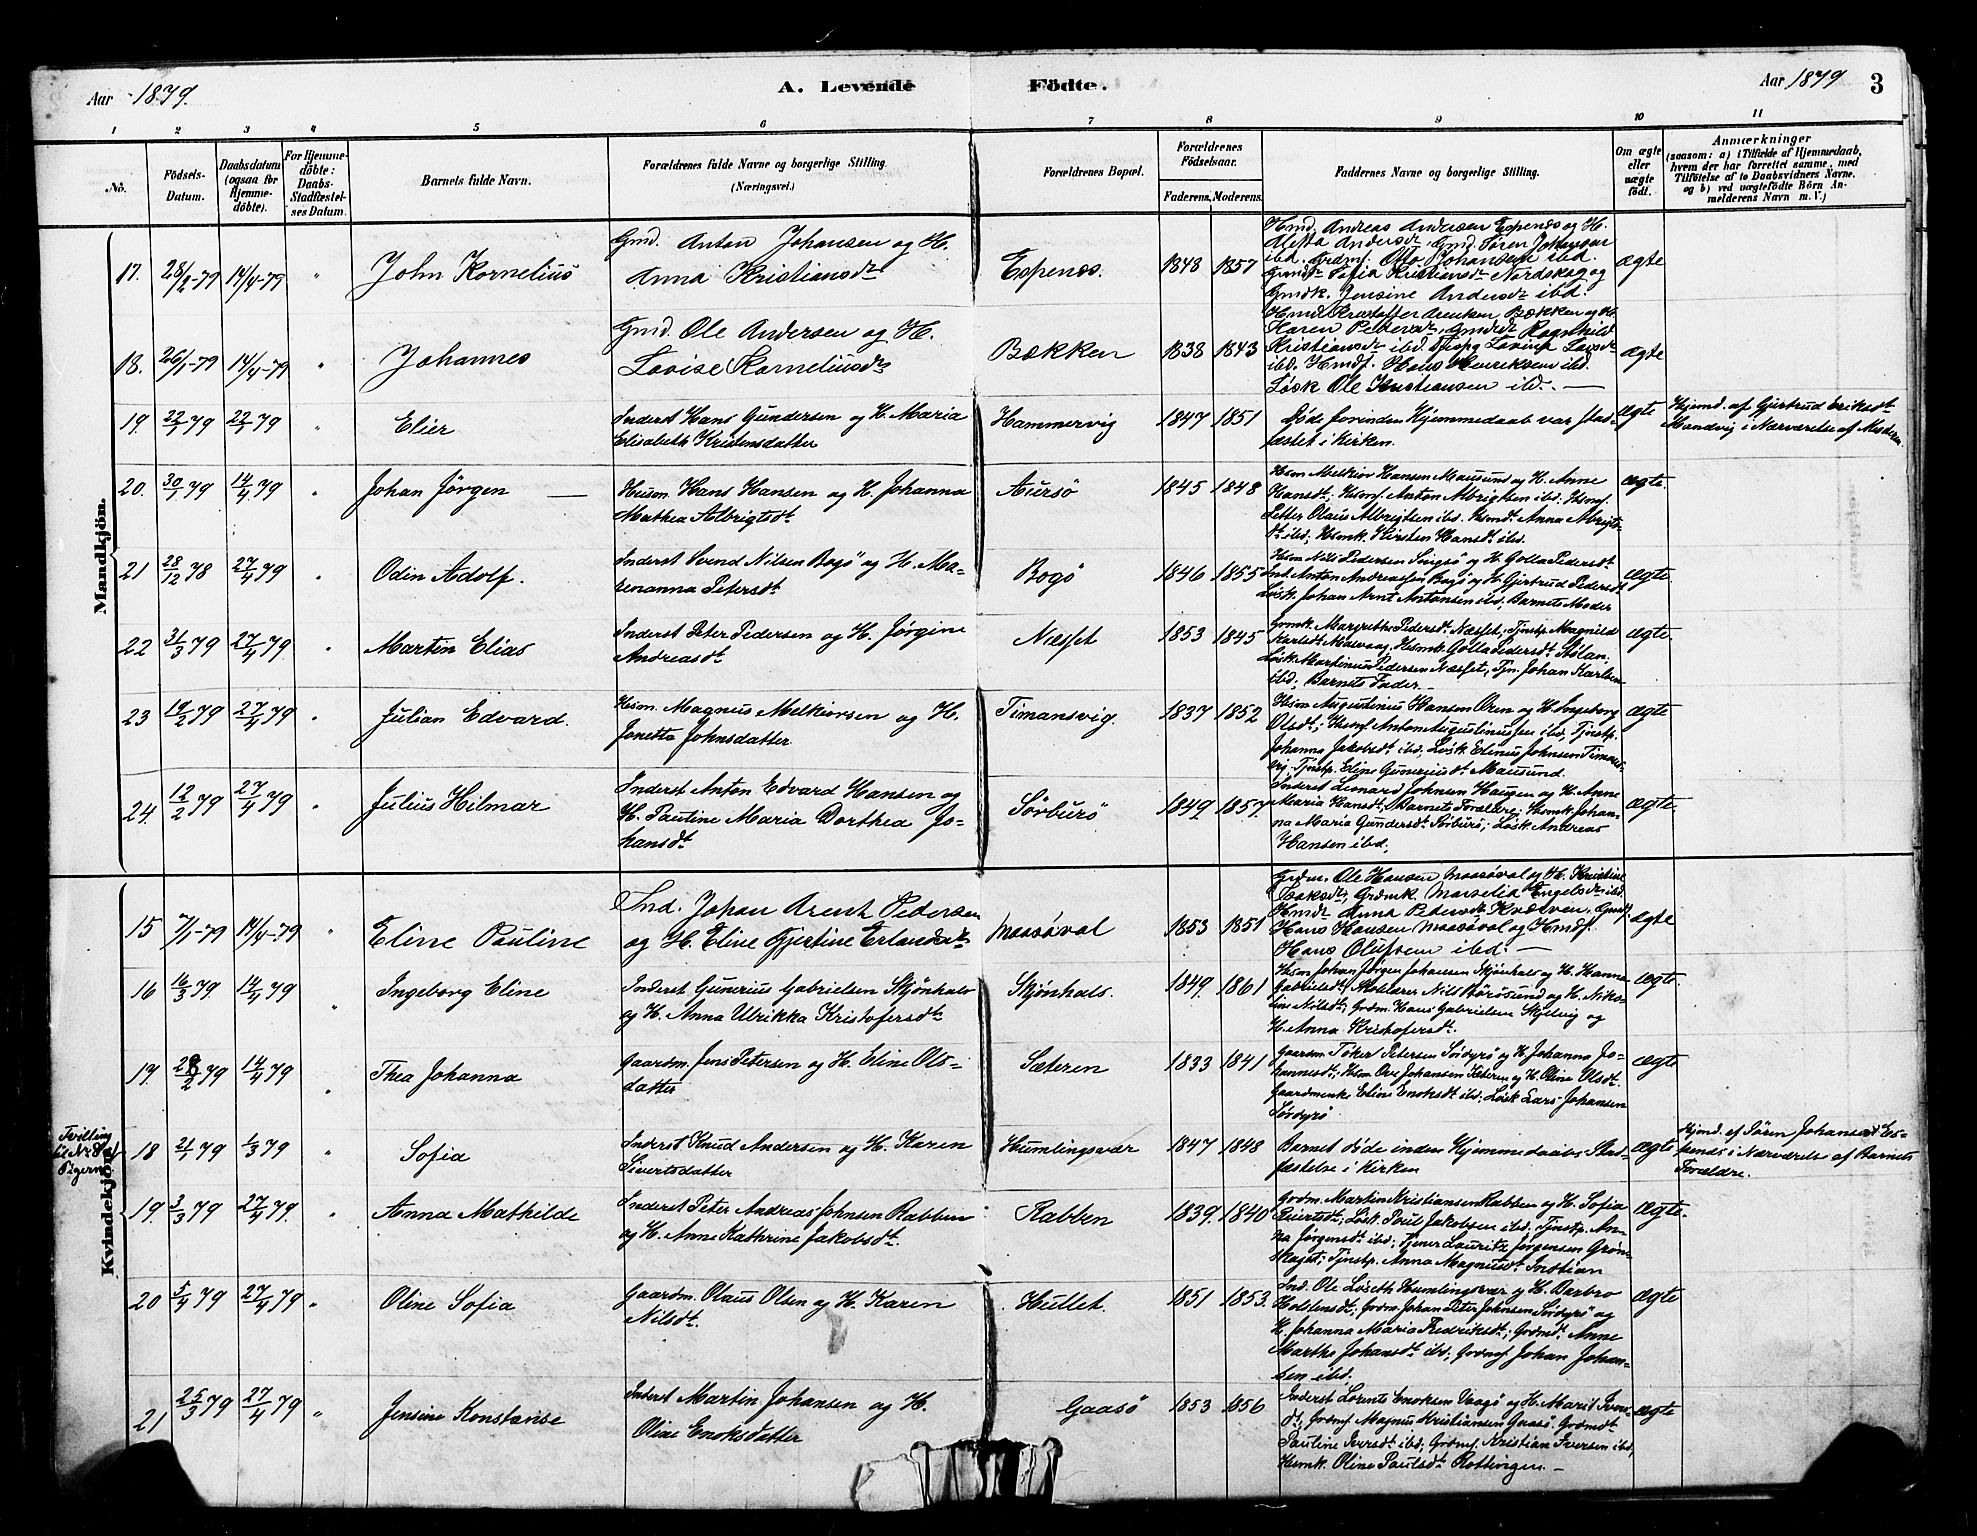 Aar 1879.
A. Levende Födte.
Aar 1879
3
1 2 3 4 5 6 7 8 9 10 11
No.
Födsels-Datum.
Daabsdatum (ogsaa for Hjemme-döbte).
For Hjemme-döbte: Daabs-Stadfæstel-ses Datum.
Barnets fulde Navn.
Forældrenes fulde Navne og borgerlige Stilling.
(Næringsvei.)
Forældrenes Bopæl.
Forældrenes Födselsaar.
Faderens. Moderens.
Faddernes Navne og borgerlige Stilling.
Om ægte eller uægte født.
Anmærkninger
(saasom: a) i Tilfælde af Hjemmedaab, hvem der har forrettet samme, med Tilföielse af to Daabsvidners Navne, og b) ved uægtefödte Börn Anmelderens Navn m. V.)
Mandkjön.
17. 28/2-79 14/4-79 " John Kornelius
Gmd. Anton Johansen og H.
Anna Kristiansdtr
Espenes. 1848 1857
Hmd. Andreas Andersen Espenes og H.
ibd. Otto Johansen ibd.
Sofia Kristiansdtr Nordskag og
Gmdk. Jensine Andersdtr ibd.
ægte
18. 26/1-79 14/4-79 " Johannes
Gmd. Ole Andersen og H.
Lovise Korneliusdtr
Bækken 1838 1843
Karen Pedersdtr, Ragnhild
Kristiansdtr ibd.
ibd. Hmdf. Hans Henriksen ibd.
Løsk Ole Kristiansen ibd. —
ægte
19. 22/1 79 22/1 79 " Elier
Inderst Hans Gundersen og H. Maria
Elisabeth Kristensdatter
Hammervig 1847 1851
Døde forinden Hjemmedaab var stad-
fæstet i Kirken.
ægte
Hjemd. af Gjertrud Eriksdt
i Nærværelse af Modern
20. 30/1 79 14/4 79 " Johan Jørgen —
Husm. Hans Hansen og H. Johanna
Mathea Albrigtsdt
Aursö 1845 1848
Hsm Melkior Hansen Mausund og H. Anne
Hansdt; Hsmf. Anton Albrigtsen ibd. Hsmf.
Petter Olaus Albrigtsen ibd. Hsmdt. Anna Albrigts-
dt ibd; Hsmk. Kirsten Hansdt ibd.
ægte
21 28/12 78 27/4 79 " Odin Adolf.
Inderst Svend Nilsen Bogö og H. Ma-
renanna Petersdt
Bogö 1846 1855
Hsm Nils Pedersen og H. Golla Pedersdt
Ind. Anton Andreassen Bogö og H. Gjertrud Pedersdt
Løsk. Johan Arnt Antonsen ibd, Barnets Moder
ægte
22 31/3 79 27/4 79 " Martin Elias
Inderst Peter Pedersen og H. Jørgine
Andreasdt
Næsset 1853 1845
Grmk. Margrethe Pedersdt. Næsset; Tjnstp. Magnild
Karlsdt Hsmk. Golla Pedersdt
Løsk. Martinus Pedersen Næsset, Tjn. Johan Karlsen
ibd; Barnets Fader. —
ægte.
23 14/2 79 27/4 79 " Julian Edvard.
Hsm. Magnus Melkiorsen og H.
Jonetta Johnsdatter
Timansvig. 1837 1852
Hsm Augustinius Hansen Øren og H. Ingeborg
Olsdt; Hsmf. Anton Augustiniussen ibd, Tjnstp.
Johanna Jakobsdt ibd; Løsk. Elinus Johnsen Timans-
vig, Tjnstp. Eline Gunerjusdt Mausund.
ægte
24. 12/2 79 27/4 79 " Julius Hilmar
Inderst Anton Edvard Hansen og
H. Pauline Maria Dorthea Jo-
hansdt
Sörburö 1849 1857.
Inderst Leonard Johnsen Haugen og H. Anne
Maria Hansdt; Barnets Forældre; Hsmk. Johan-
na Maria Gundersdt Sörburö; Løsk. Andreas
Hansen ibd;
ægte.
Kvindekjön.
15 7/1-79 14/4-79 " Eline Pauline
Ind. Johan Arent Pedersen
og H. Eline Gjertine Erlandsdtr
Maasøval 1853 1851
Grdm. Ole Hansen Maasøval og H. Kristine
Isaksdtr; Grdmk Marselia Engelsdtr ibd.
Hmdtr Anna Petersdtr
Hans Hansen Maasøval og Hmdf.
Hans Olufsen ibd. —
ægte
16 16/3 79. 14/4 79 " Ingeborg Eline
Inderst Gunerius Gabrielsen Skjönhals
og H. Anna Ulrikka Kristofersdt
Skjönhals. 1849. 1861
Hsm Johan Jørgen Johansen Skjönhals og H. Hanna
Gabrielsdt; Skolelærer Nils og H. Niko-
line Nilsdt; Grdm. Hans Gabrielsen Skjelvig og
H. Anna Kristofersdt.
ægte.
17. 28/2 79 14/4 79 " Thea Johanna
Gaardm. Jens Petersen og H. Eline Ols-
datter
Sæteren 1833 1841
Gaardm Tøker Petersen Sördyrö og H. Johanna Jo-
hannesdt; Hsm Ove Johansen Sæteren og H. Oline Olsdt.
Gaardmenke Eline Enoksdt ibd; Løsk Lars Johansen
Sördyrö
ægte
Tvilling til No 8 af Pigerne.
18 21/1 79 1/3 79 " Sofia
Inderst Knud Andersen og H. Karen
Sivertsdatter
Humlingsvær 1847 1848
Barnet døde inden Hjemmedaabs Stad-
fæstelse i Kirken
ægte
Hjemd. af Sören Johansen Es-
penes i Nærværelse af Barnets
Forældre.
19. 3/3 79 27/4 79. " Anna Mathilde
Inderst Peter Andreas Johnsen Rabben
og H. Anne Kathrine Jakobsdt.
Rabben 1839. 1840
Grdm. Martin Kristiansen Rabben og H. Sofia
Sivertsdt; Løsk. Poul Jakobsen ibd. Tjnstp. An-
na Jørgensdt ibd; Tjener Lauritz Jørgensen Grøn-
skaget; Tjnstp. Anna Magnusdt
ægte.
20 5/4 79 27/4 79 " Oline Sofia
Gaardm. Olaus Olsen og H. Karen
Nilsdt.
Hullet. 1851 1853.
Ind. Ole Löseth Humlingsvær og H. Barbro
Holstensdt; Grdm. Johan Peter Johnsen Sördyrö og
H. Johanna Maria Fredriksdt; Grdmdt. Anne
Martha Johansdt ibd; Grdmf Johan Johan-
sen ibd.
ægte
21 25/3 79 27/4 79 " Jensine Konstanse
Inderst Martin Johansen og H.
Oline Enoksdatter
Gaasö 1853 1856
Inderst Lorents Enoksen Vaagö og H. Marit Ivers-
dt; Grdmf Magnus Kristiansen Gaasö. Grdmdt
Pauline Iversdt ibd; Grdmf. Kristian Iversen ibd,
Hsmk. Oline Paulsdt Rottingen. —
ægte